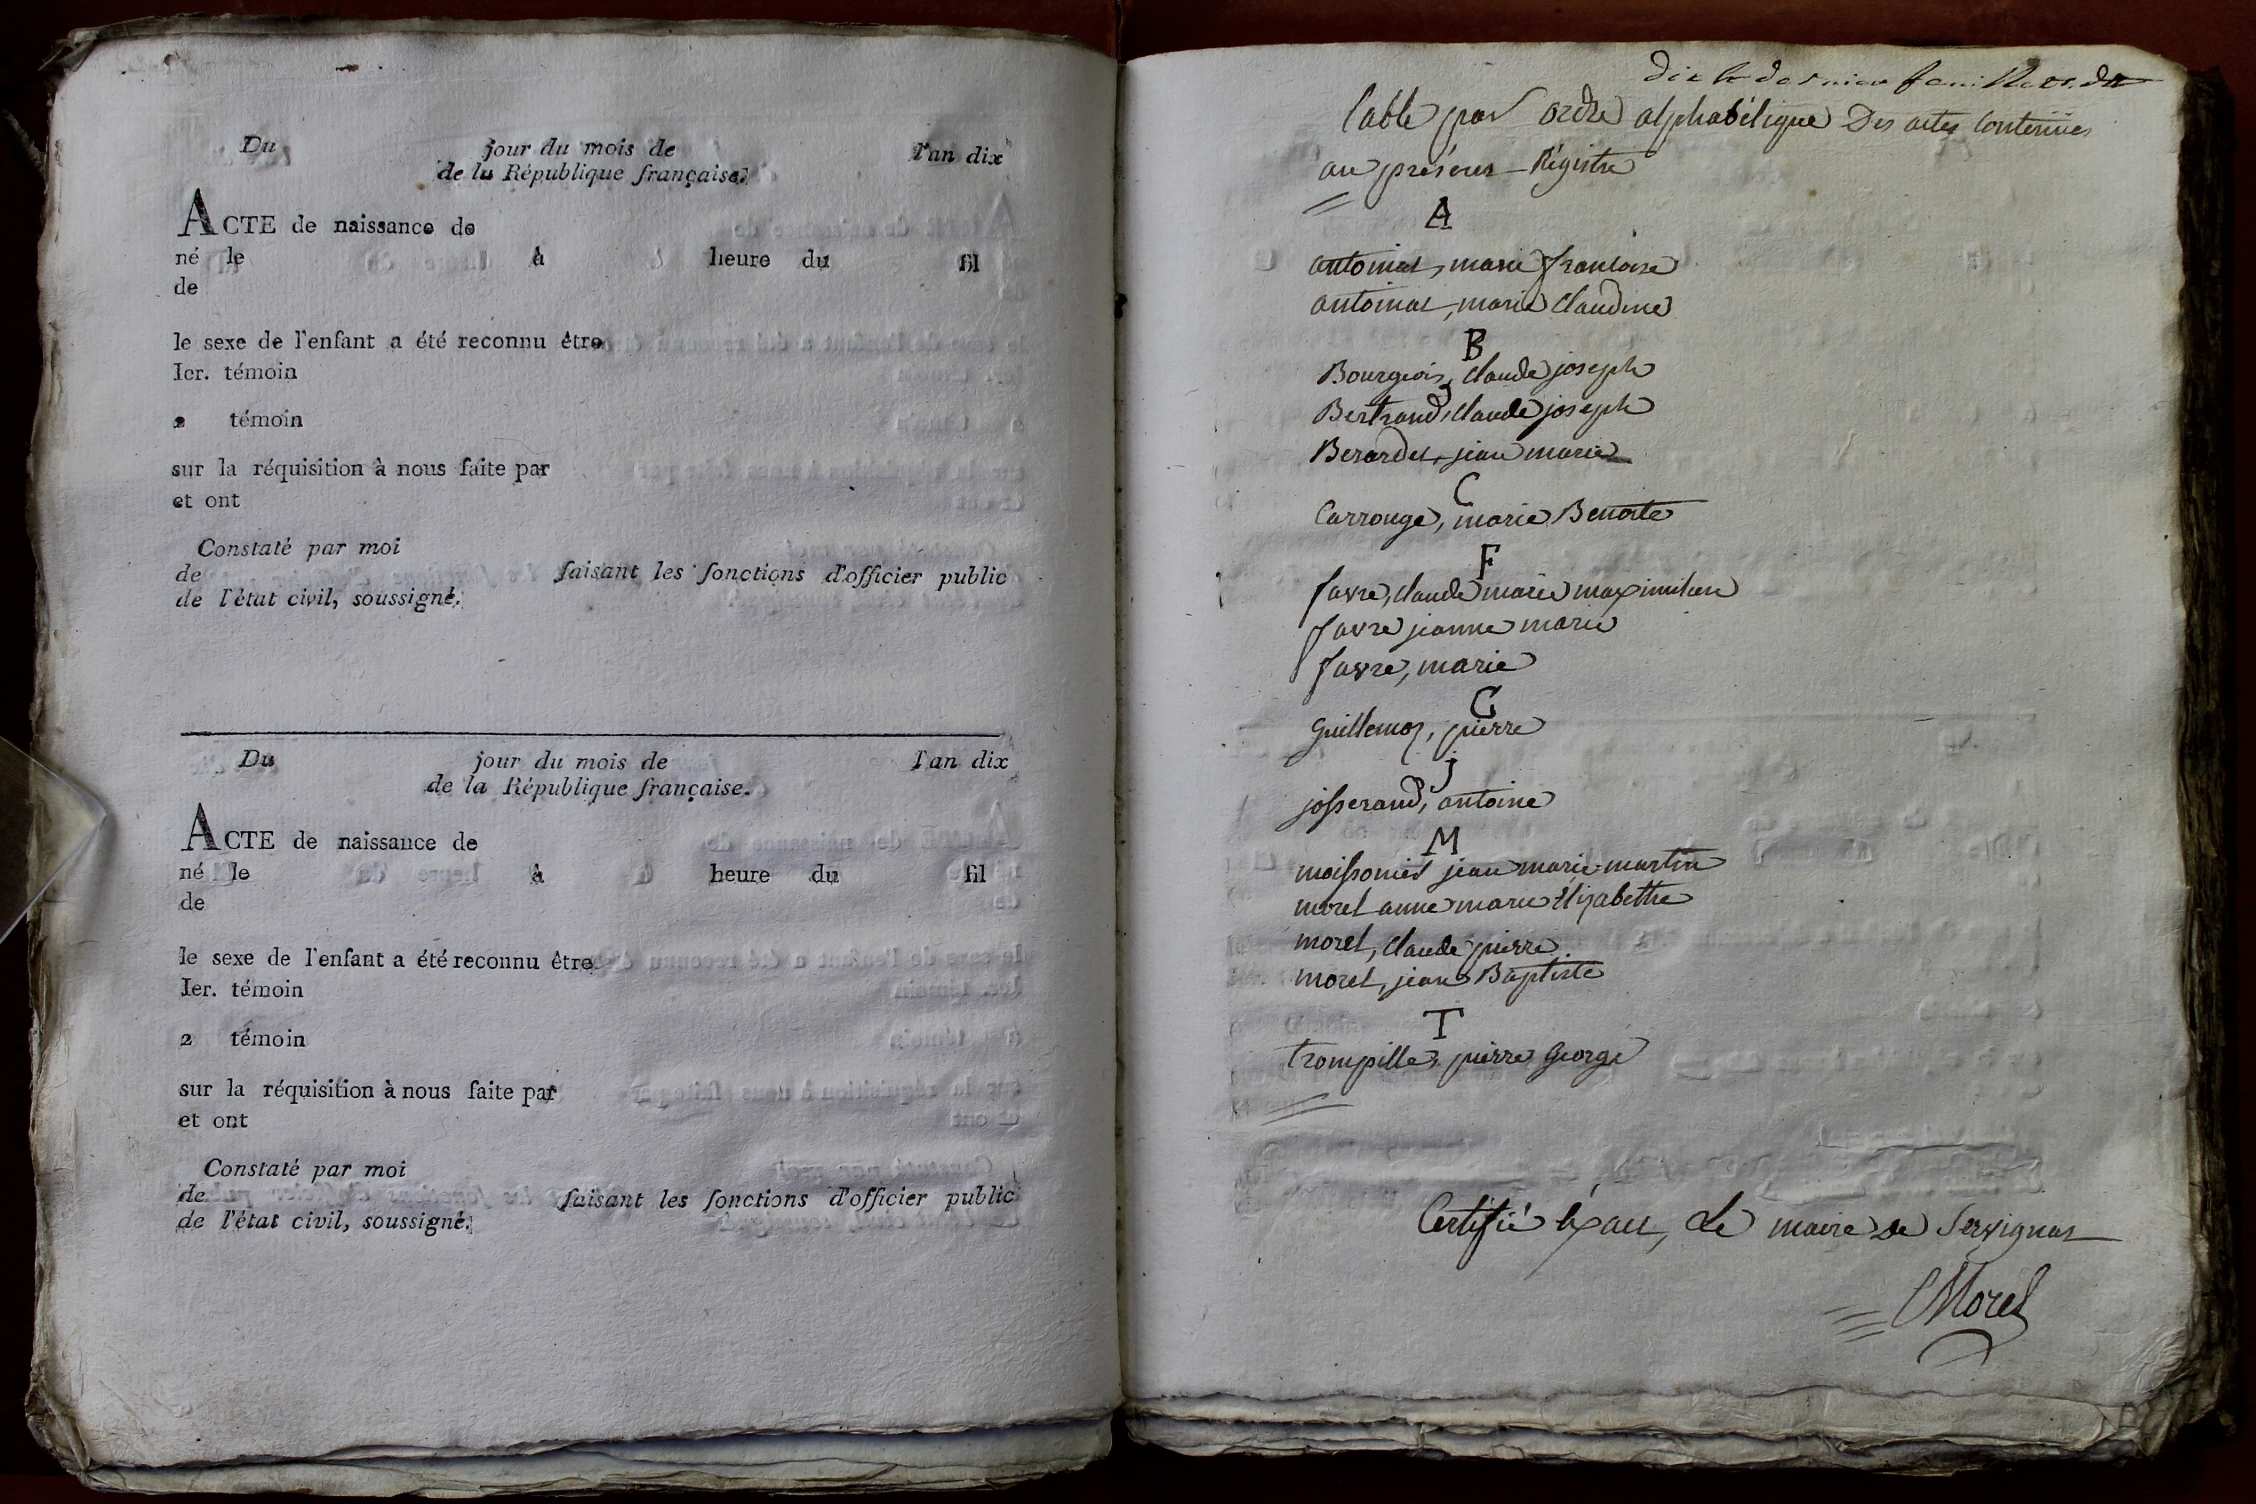 Du jour du mois de l'an dix
de la République française.
ACTE de naissance de
né le à heure du fil
de
le sexe de l'enfant a été reconnu être
Ier. témoin
2 témoin
sur la réquisition à nous faite par
et ont
Constaté par moi
de faisant les fonctions d'officier public
de l'état civil, soussigné.
Du jour du mois de l'an dix
de la République française.
ACTE de naissance de
né le à heure du fil
de
le sexe de l'enfant a été reconnu être
Ier. témoin
2 témoin
sur la réquisition à nous faite par
et ont
Constaté par moi
de faisant les fonctions d'officier public
de l'état civil, soussigné.
dernier
table par ordre alphabétique Des actes Contenües
au présent Régistre
A
antoinat, marie francoise
antoinat, marie Claudine
B
Bourgeois, Claude joseph
Bertrand, Claude joseph
Berardet, jean marie
C
Carronge, marie Benoite
F
favre, Claude marie maximilien
favre jeanne marie
favre, marie
G
Guillemoz, pierre
j
josserand, antoine
M
moissonier jean marie martin
morel anne marie Elizabethe
morel, Claude pierre
morel, jean Baptiste
T
trompille, pierre George
Certifié Exact, Le maire de Servignat
Morel